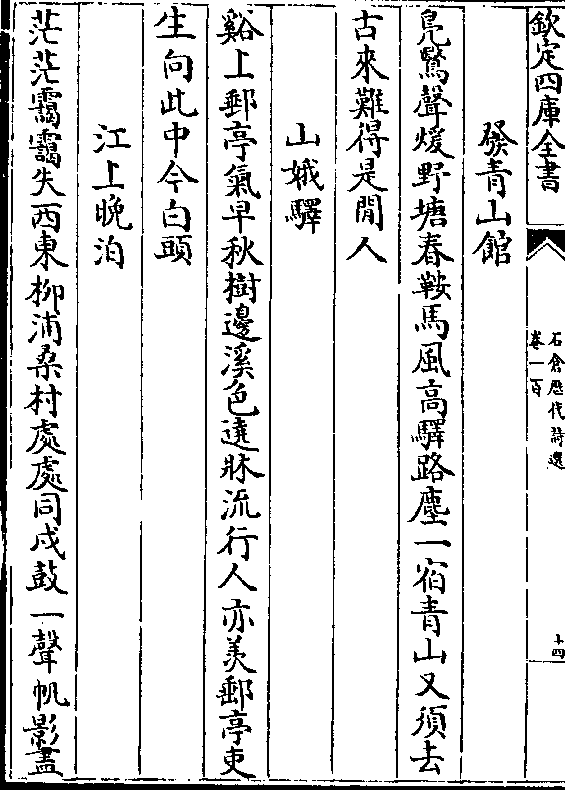 欽定四庫全書
石倉歷代詩選
卷一百
十四
發青山館
鳬鷖聲煖野塘春鞍馬風高驛路塵一宿青山又須去
古來難得是閒人
山娥驛
谿上郵亭氣早秋樹邊溪色遶牀流行人亦羡郵亭吏
生向此中今白頭
江上晚泊
茫茫靄靄失西東柳浦桑村處處同戍鼓一聲帆影盡